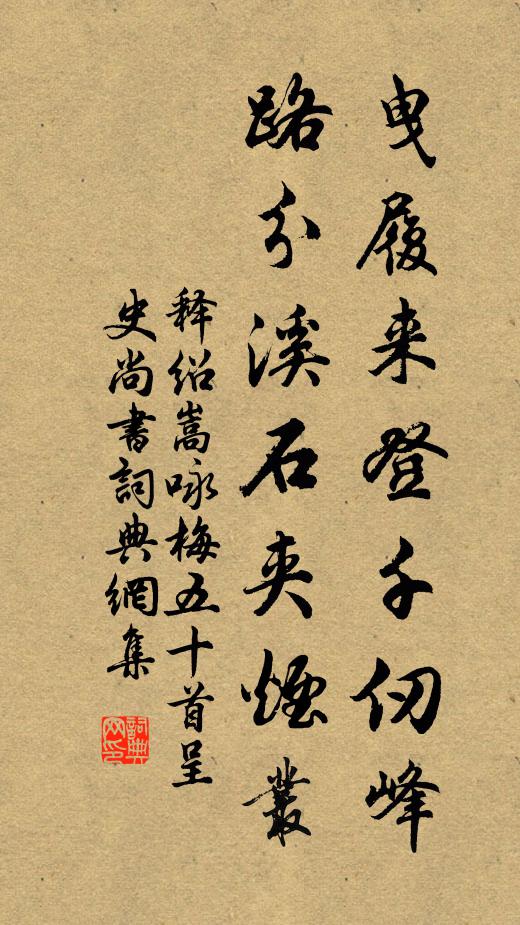 曳履来登千仞峰
路分溪石夹烟丛
释绍嵩咏梅五十首呈
史尚书词典網集
詞典
网印